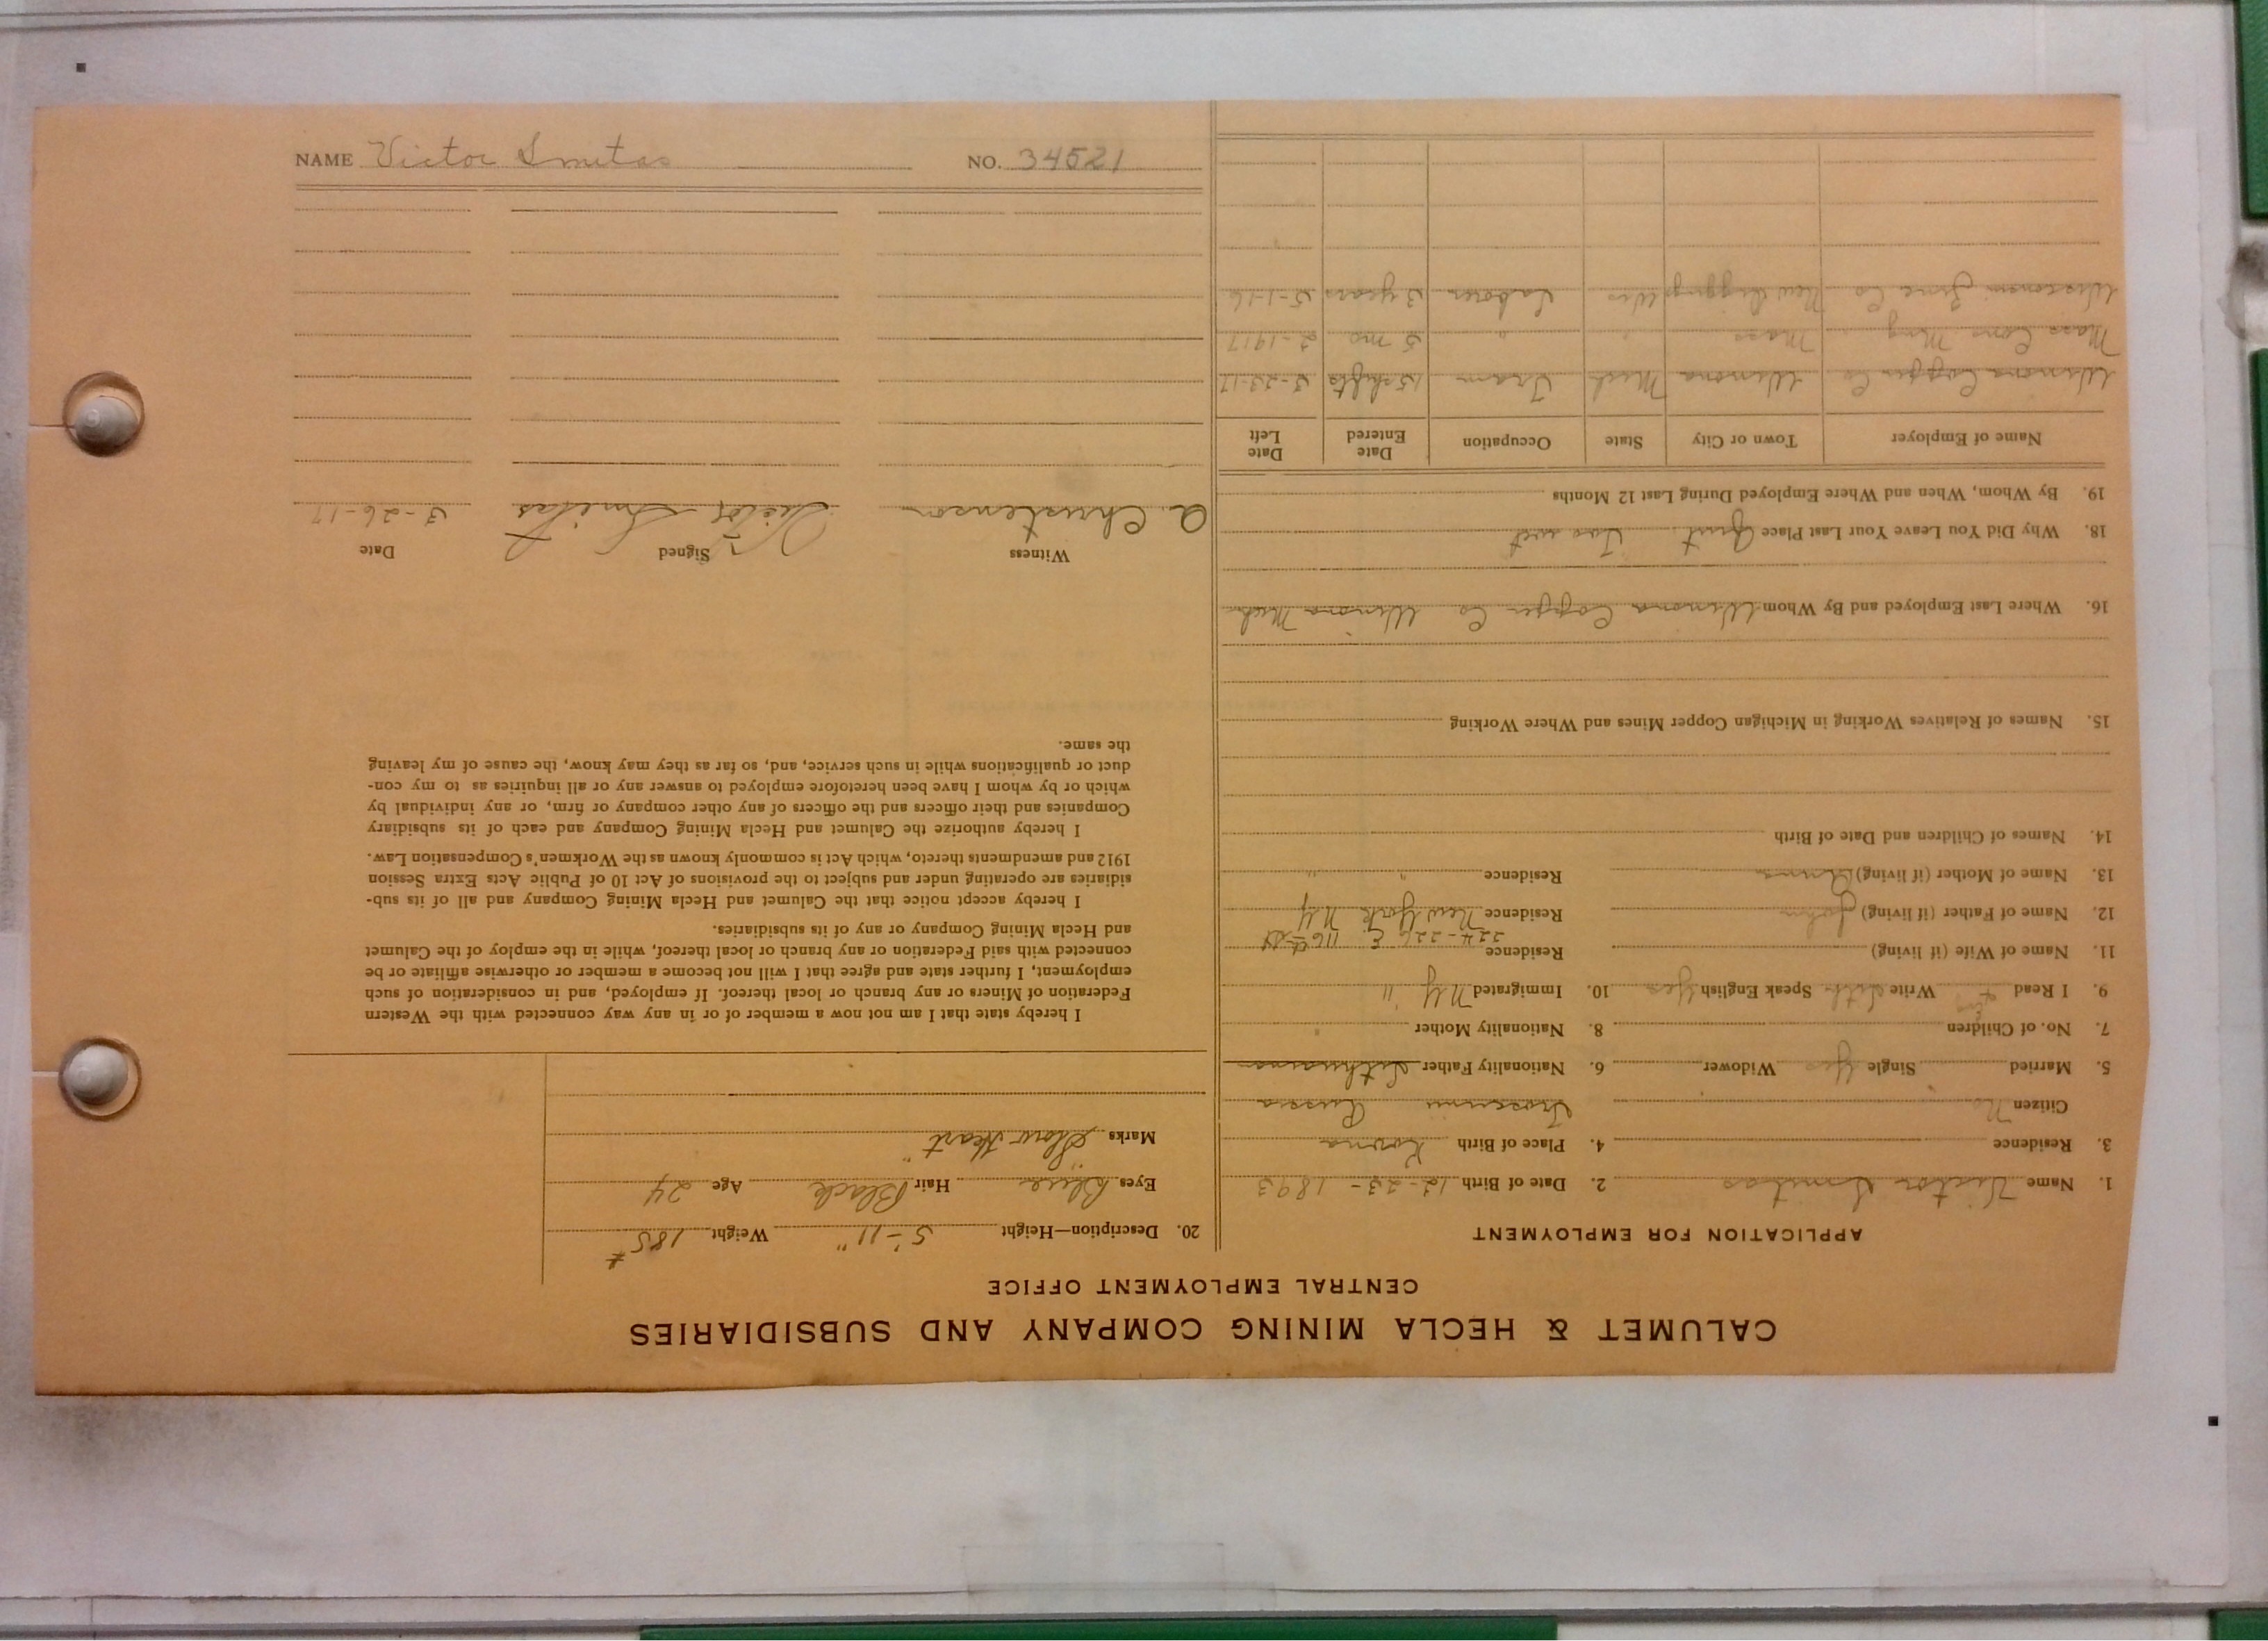 NAME Victor Smitas NO. 34521
CALUMET & HECLA MINING COMPANY AND SUBSIDIARIES
CENTRAL EMPLOYMENT OFFICE
APPLICATION FOR EMPLOYMENT
1. Name Victor Smitas 2. Date of Birth 12-23-1893
3. Residence 4. Place of Birth Kovna
Citizen No Russia
5. Married Single Yes Widower 6. Nationality Father Lithuanian
7. No. of Children 8. Nationality Mother "
9. I Read Write Lith Speak English Yes 10. Immigrated N Y "
11. Name of Wife (if living) Residence
224-226 E 116th St
12. Name of Father (if living) John Residence New York N Y
13. Name of Mother (if living) Anna Residence " "
14. Names of Children and Date of Birth
15. Names of Relatives Working in Michigan Copper Mines and Where Working
16. Where Last Employed and By Whom Winona Copper Co Winona Mich
18. Why Did You Leave Your Last Place Quit Too wet
19. By Whom, When and Where Employed During Last 12 Months
Name of Employer Town or City State Occupation Date Entered Date Left
Winona Copper Co Winona Mich Tram 15 shifts 3-23-17
Mass Cons Mng Mass " " 5 mo 2-1917
Wisconsin Zinc Co New Diggings Wis Laborer 3 years 5-1-16
20. Description—Height 5'-11" Weight 185#
Eyes Blue Hair Black Age 24
Marks "Slow Heart"
I hereby state that I am not now a member of or in any way connected with the Western
Federation of Miners or any branch or local thereof. If employed, and in consideration of such
employment, I further state and agree that I will not become a member or otherwise affiliate or be
connected with said Federation or any branch or local thereof, while in the employ of the Calumet
and Hecla Mining Company or any of its subsidiaries.
I hereby accept notice that the Calumet and Hecla Mining Company and all of its sub-
sidiaries are operating under and subject to the provisions of Act 10 of Public Acts Extra Session
1912 and amendments thereto, which Act is commonly known as the Workmen's Compensation Law.
I hereby authorize the Calumet and Hecla Mining Company and each of its subsidiary
Companies and their officers and the officers of any other company or firm, or any individual by
which or by whom I have been heretofore employed to answer any or all inquiries as to my con-
duct or qualifications while in such service, and, so far as they may know, the cause of my leaving
the same.
Witness Signed Date
A. Christenson Victor Smitas 3-26-17